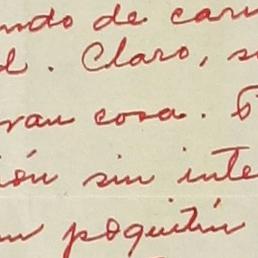 ndo de cari
d. Claro, s
ran cosa.
ión sin inte
un poquitín